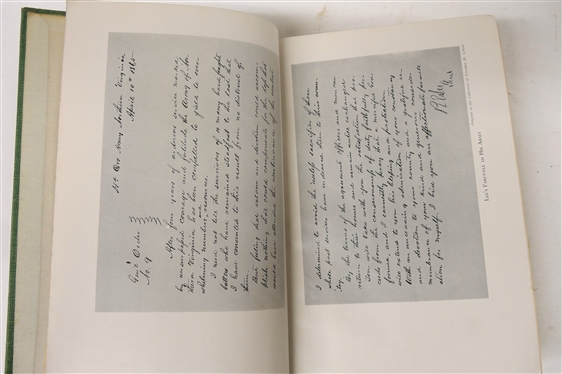 Hd Qrs Army Northern Virginia
April 10th 1865
Genl Order
No. 9
After four years of arduous service marked
by unsurpassed courage and fortitude the Army of Nor
thern Virginia has been compelled to yield to over
whelming numbers and resources.
I need not tell the survivors of so many hard fought
battles who have remained steadfast to the last that
I have consented to this result from no distrust of
them.
But feeling that valour and devotion could accom
plish nothing that could compensate for the loss that
would have attended the continuance of the contest
I determined to avoid the useless sacrifice of those
whose past services have endeared them to their coun
try.
By the terms of the agreement officers and men can
return to their homes and remain until exchanged
You will take with you the satisfaction that pro
ceeds from the consciousness of duty faithfully per
formed, and I earnestly pray that a merciful God
will extend to you his blessing and protection.
With an unceasing admiration of your constancy
and devotion to your country and a grateful re
membrance of your kind and generous consider
ation for myself. I bid you an affectionate farewell
R E Lee
Genl
LEE'S FAREWELL TO HIS ARMY